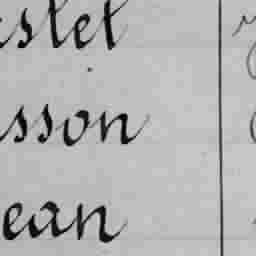 stet
sson
ean